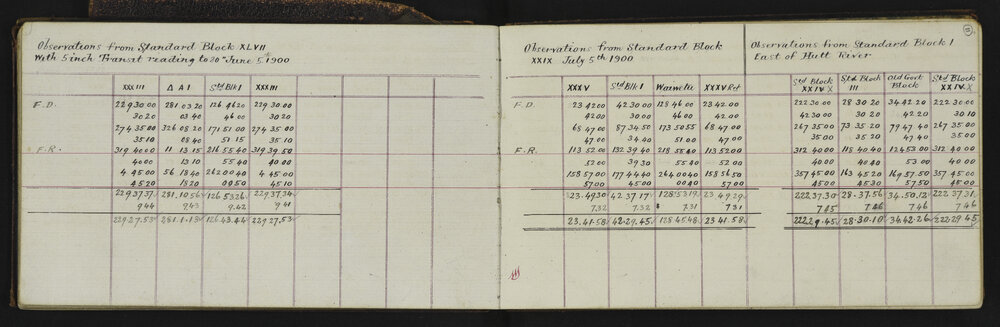 Observations from Standard Block XLVII
With 5 inch Transit reading to 20" June 5th 1900
XXXIII Δ A I Std Blk I XXXIII
F.D. 229 30 00 281 03 20 126 46 20 229 30 00
30 20 03 40 46 00 30 20
274 35 00 326 08 20 171 51 00 274 35 00
35 10 08 40 51 15 35 10
F.R. 319 40 00 11 13 15 216 55 40 319 39 50
40 00 13 10 55 40 40 00
4 45 00 56 18 40 262 00 40 4 45 00
45 20 18 20 00 50 45 10
229 37 37 281.10 56 126 53 26 229 37 34
9 44 9 43 9.42 9 41
229 27.53 281.1.13 126 43.44 229 27.53
Observations from Standard Block
XXIX July 5th 1900
XXXV Std Blk I Waiwetu XXXV Ref
F.D. 23 42 00 42 30 00 128 46 00 23 42 00
42 00 30 00 46 00 42 00
68 47 00 87 34 50 173 50 55 68 47 00
47 00 34 40 51 00 47 00
F.R. 113 52 00 132 39 40 218 55 40 113 52 00
52 00 39 30 55 40 52 00
158 57 00 177 44 40 264 00 40 158 56 50
57 00 45 00 00 40 57 00
23.49 30 42 37 17 128 53 19 23 49 29
7.32 7 32 7 31 7 31
23.41.58 42.29.45 128 45 48 23 41.58
Observations from Standard Block I
East of Hutt River
Std Block XXIV X Std Block III Old Govt Block Std Block XXIV. X
222 30 00 28 30 20 34 42 20 222 30 00
30 10 30 20 42 20 30 10
267 35 00 73 35 20 79 47 40 267 35 00
35 00 35 20 47 40 35 00
312 40 00 118 40 40 124 53 00 312 40 00
40 00 40 40 53 00 40 00
357 45 00 163 45 20 169 57 50 357 45 00
45 00 45 30 57 50 45 00
222 37.30 28.37.56 34.50.12 222 37.31
7 45 7 46 7 46 7 46
222 29.45 28.30.10 34.42.26 222 29 45